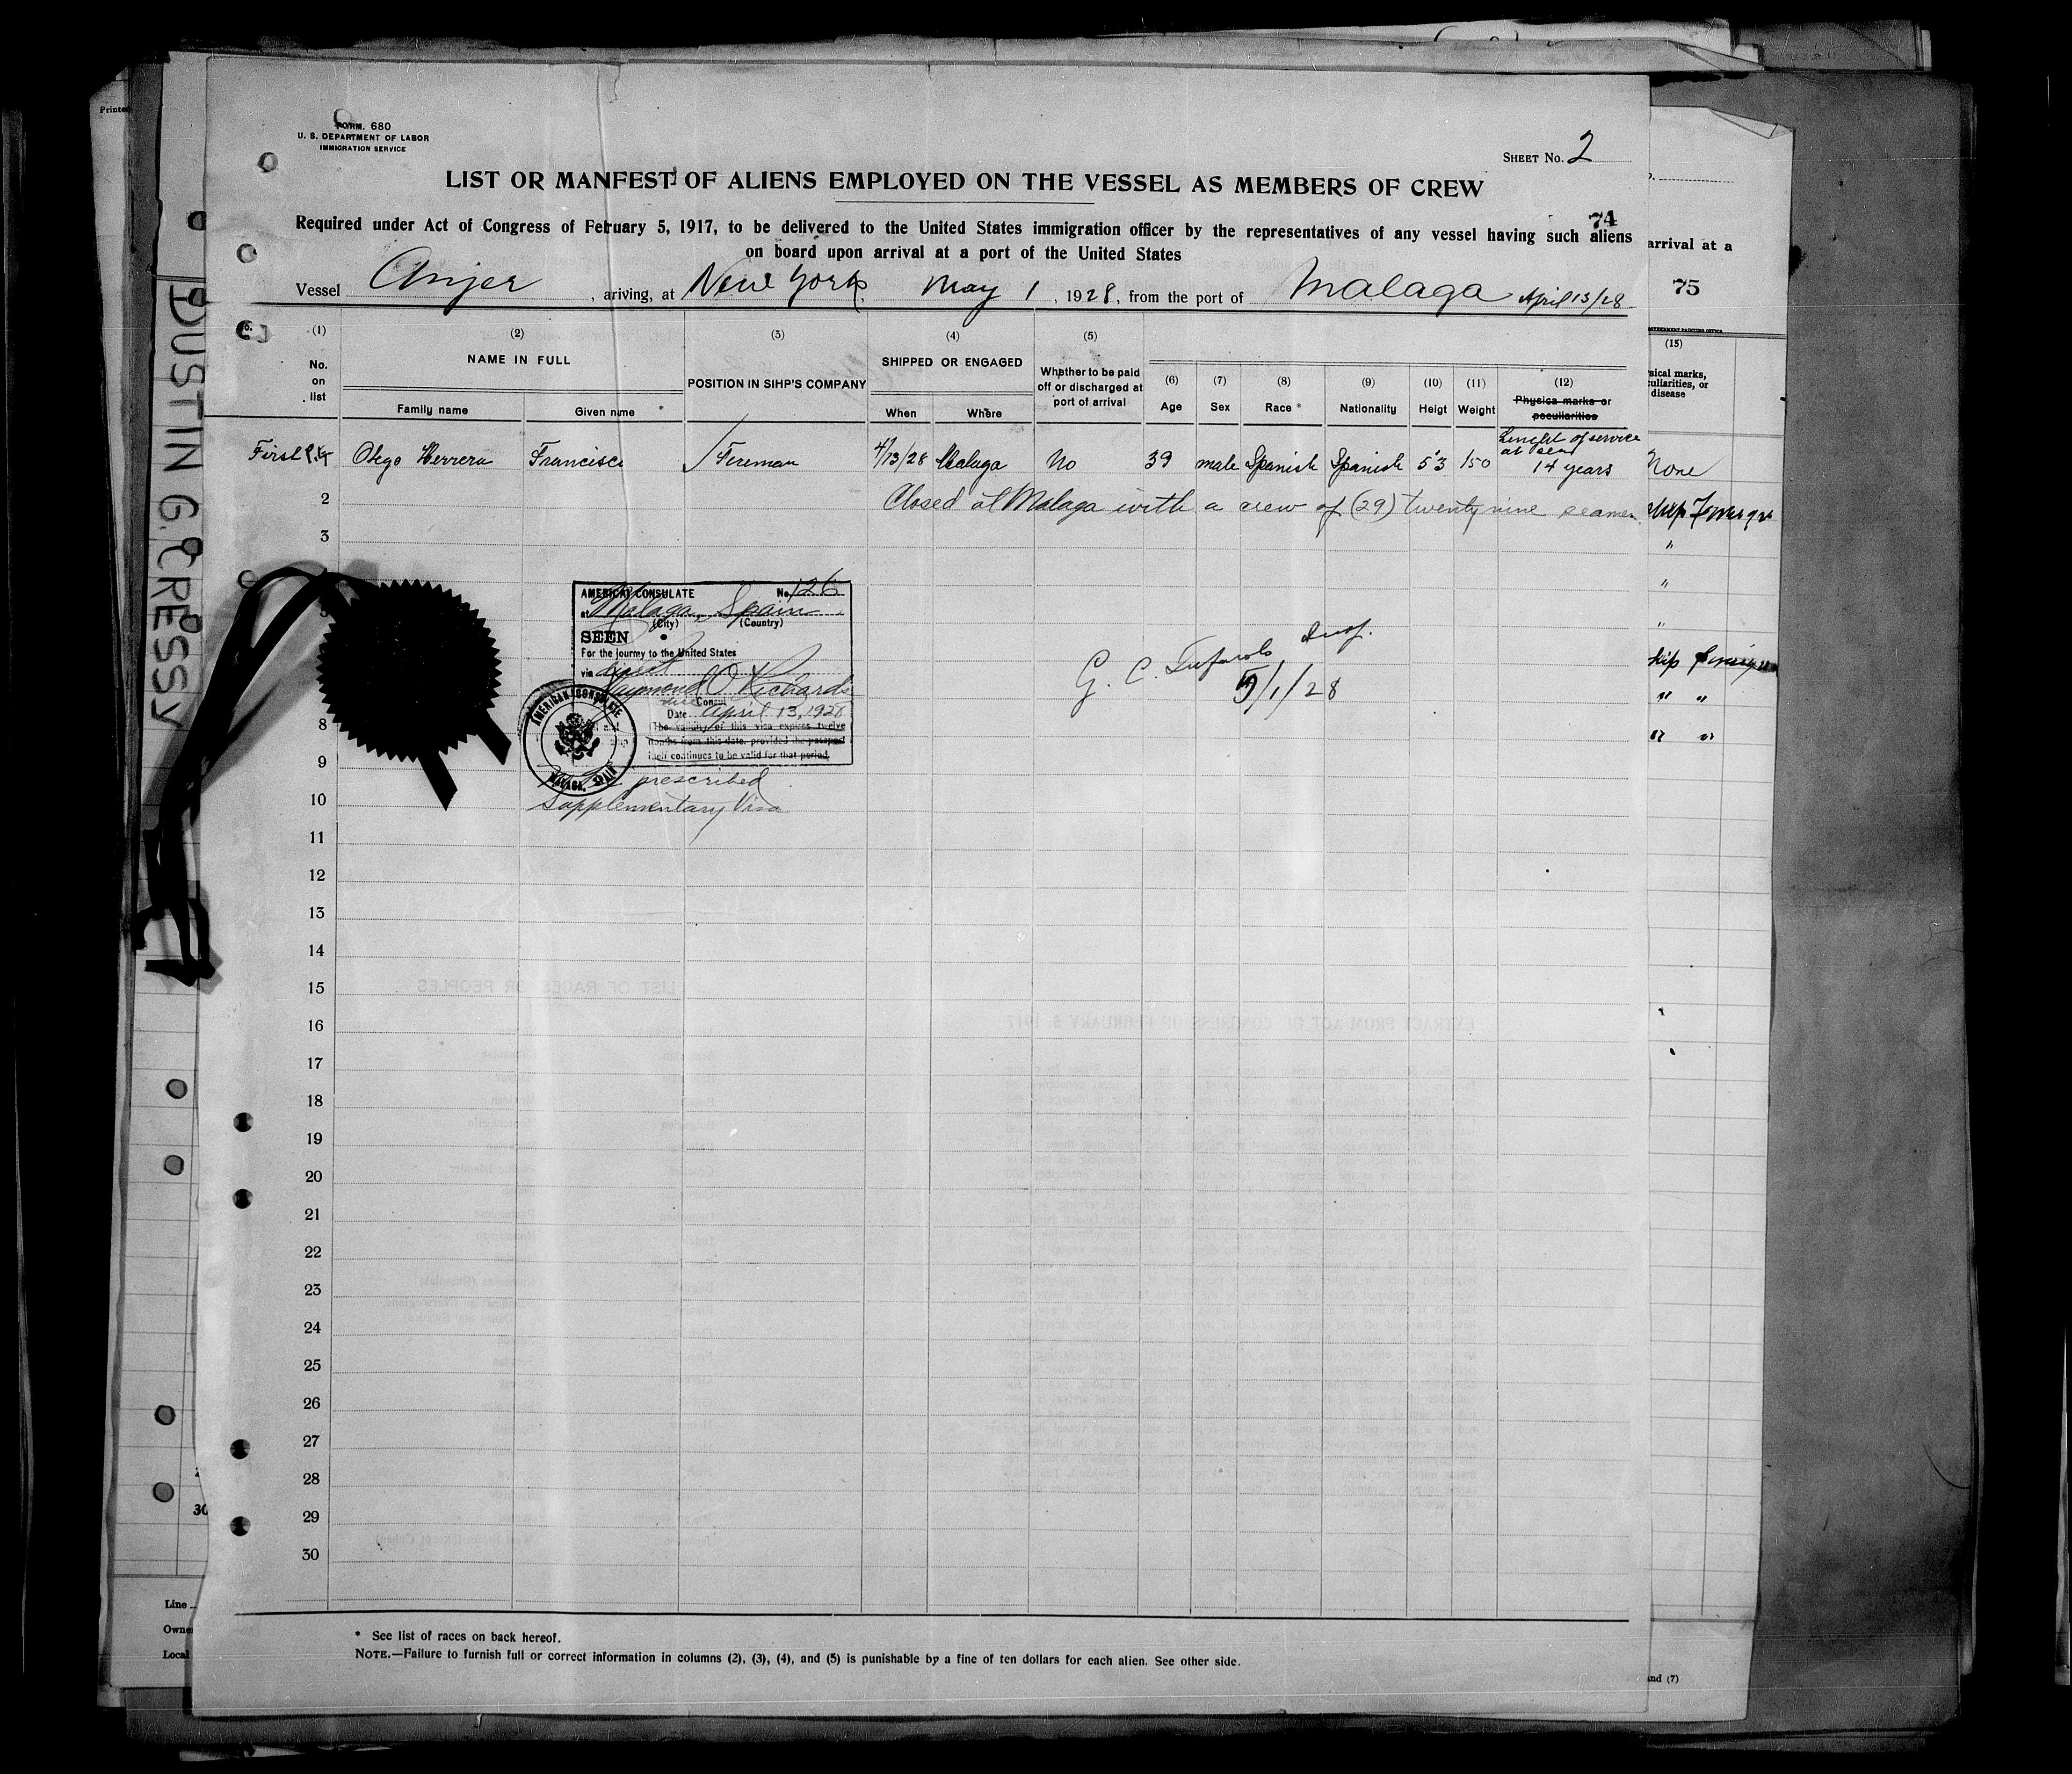 FORM. 680
U. S. DEPARTMENT OF LABOR
IMMIGRATION SERVICE
SHEET No. 2
LIST OR MANFEST OF ALIENS EMPLOYED ON THE VESSEL AS MEMBERS OF CREW
74
Required under Act of Congress of February 5, 1917, to be delivered to the United States immigration officer by the representatives of any vessel having such aliens
on board upon arrival at a port of the United States
Vessel Anjer, ariving, at New York, May 1, 1928, from the port of Malaga April 13/28
(1) No. on list
(2) NAME IN FULL
Family name
Given name *
(3) POSITION IN SIHP'S COMPANY
(4) SHIPPED OR ENGAGED
When
Where
(5) Whether to be paid off or discharged at port of arrival
(6) Age
(7) Sex
(8) Race *
(9) Nationality
(10) Heigt
(11) Weight
(12) Physica marks or peculiarities
Lenght of service
at sea
First Herrera Francisco Fireman 4/13/28 Malaga No 39 male Spanish Spanish 5'3 150 14 years
2 Closed at Malaga with a crew of (29) twenty nine seamen
3
5
AMERICAN CONSULATE No. 126
at Malaga, Spain
(City) (Country)
SEEN
For the journey to the United States
via direct
Raymond O. Richards
Vice Consul
Date April 13, 1928
(The validity of this visa expires twelve
months from this date, provided the passport
itself continues to be valid for that period.
AMERICAN CONSULATE
MALAGA, SPAIN
prescribed
Supplementary Visa
G. C. Insp.
5/1/28
8
9
10
11
12
13
14
15
16
17
18
19
20
21
22
23
24
25
26
27
28
29
30
* See list of races on back hereof.
NOTE.—Failure to furnish full or correct information in columns (2), (3), (4), and (5) is punishable by a fine of ten dollars for each alien. See other side.
arrival at a
75
(15)
sical marks,
culiarities, or
disease
None
"
"
"
" "
" "
and (7)
Printed
DUSTIN G. CRESSY
30
Line
Owne
Local